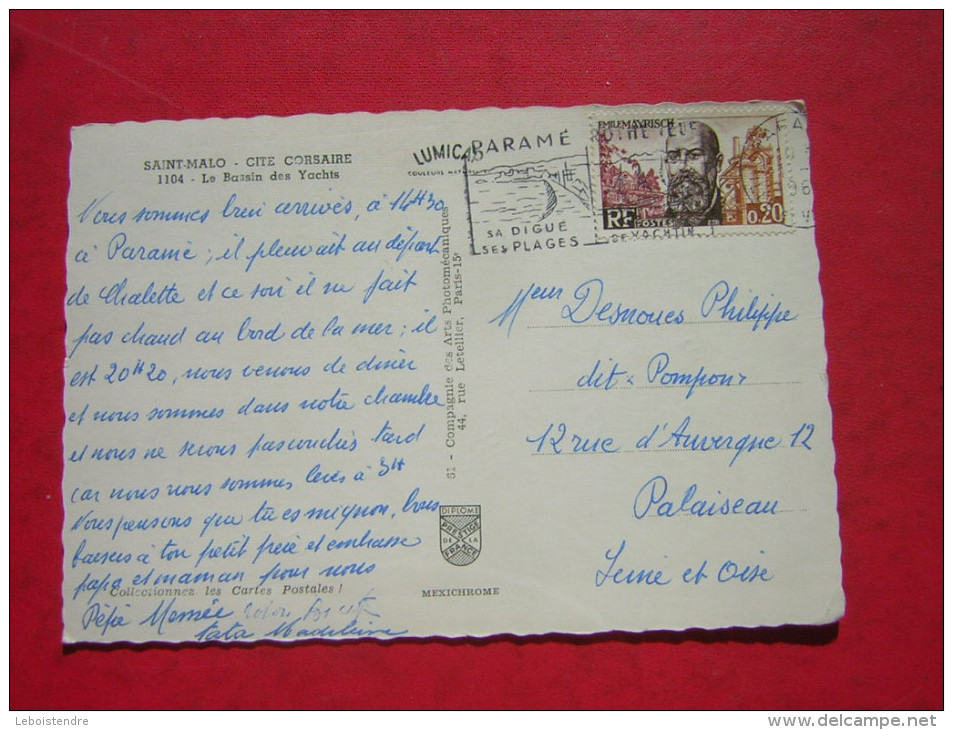 SAINT-MALO - CITE CORSAIRE
1104 - Le Bassin des Yachts
Nous sommes bien arrivés, à 14H30
à Paramé; il pleuvait au départ
de Chalette et ce soir il ne fait
pas chaud au bord de la mer; il
est 20H20, nous venons de diner
et nous sommes dans notre chambre
et nous ne serons pas couchés tard
car nous nous sommes levés à 3H
Nous pensons que tu es mignon, bons
baisers à ton petit frère et embrasse
papa et maman pour nous
Collectionnez les Cartes Postales !
Pépée Mémée
tata Madeleine
LUMICAP
COULEURS
61 - Compagnie des Arts Photomécaniques
44, rue Letellier, Paris-15e
DIPLOME
PRESTIGE
DE LA
FRANCE
MEXICHROME
PARAMÉ
SA DIGUE
SES PLAGES
EMILE MAYRISCH
RF
POSTES
0,20
Meur Desnoues Philippe
dit "Pompon"
12 rue d'Auvergne 12
Palaiseau
Seine et Oise
Leboistendre
www.delcampe.net